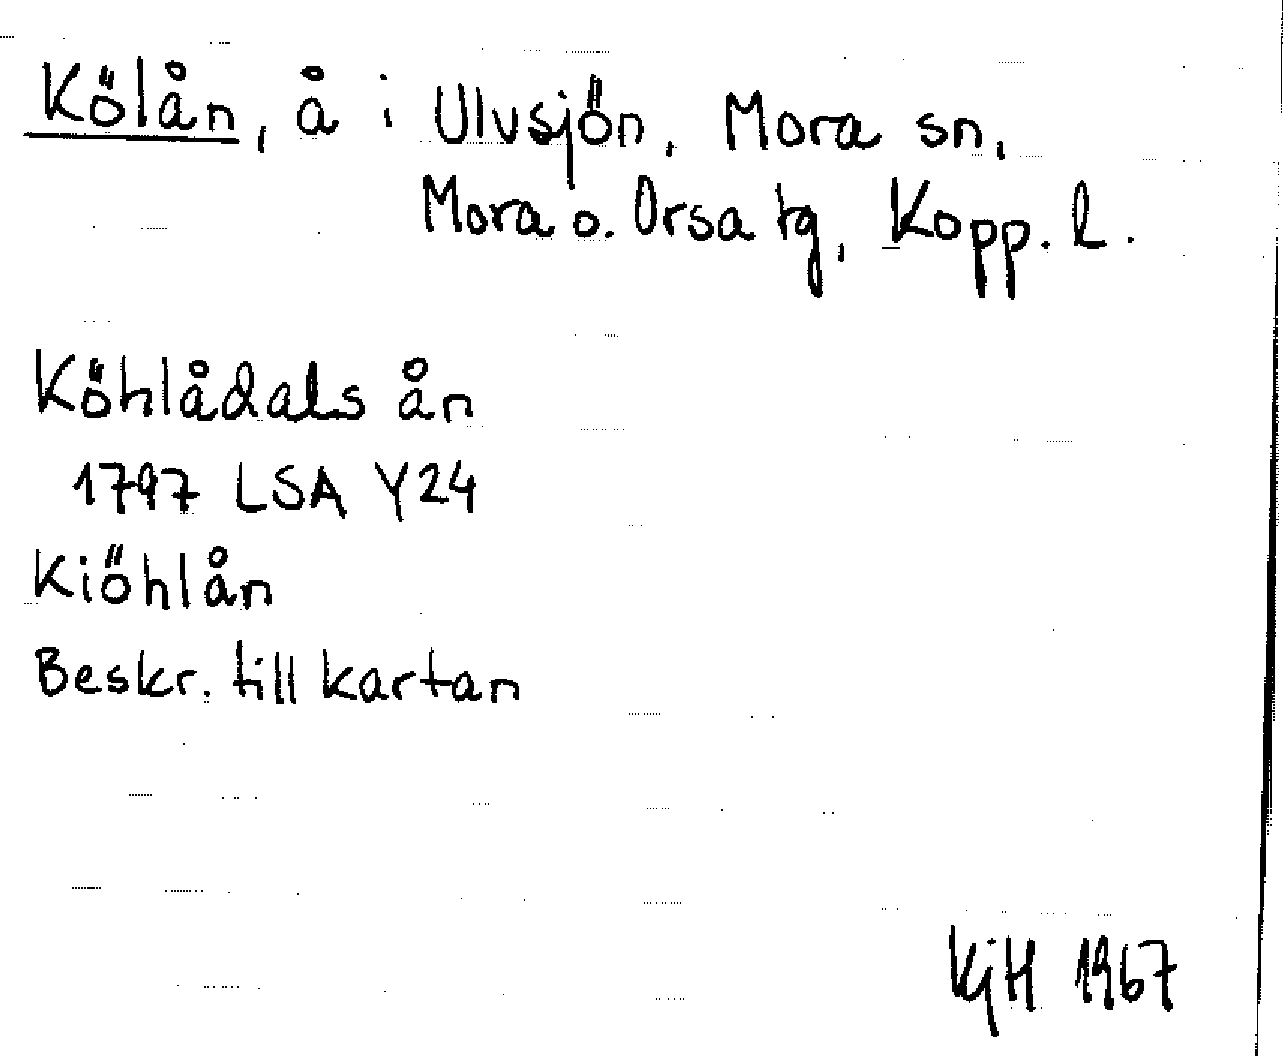 Kölån, å i Ulvsjön, Mora sn,
Mora o. Orsa tg, Kopp. l.
Köhlådals ån
1797 LSA Y24
Kiöhlån
Beskr. till kartan
KjH 1967